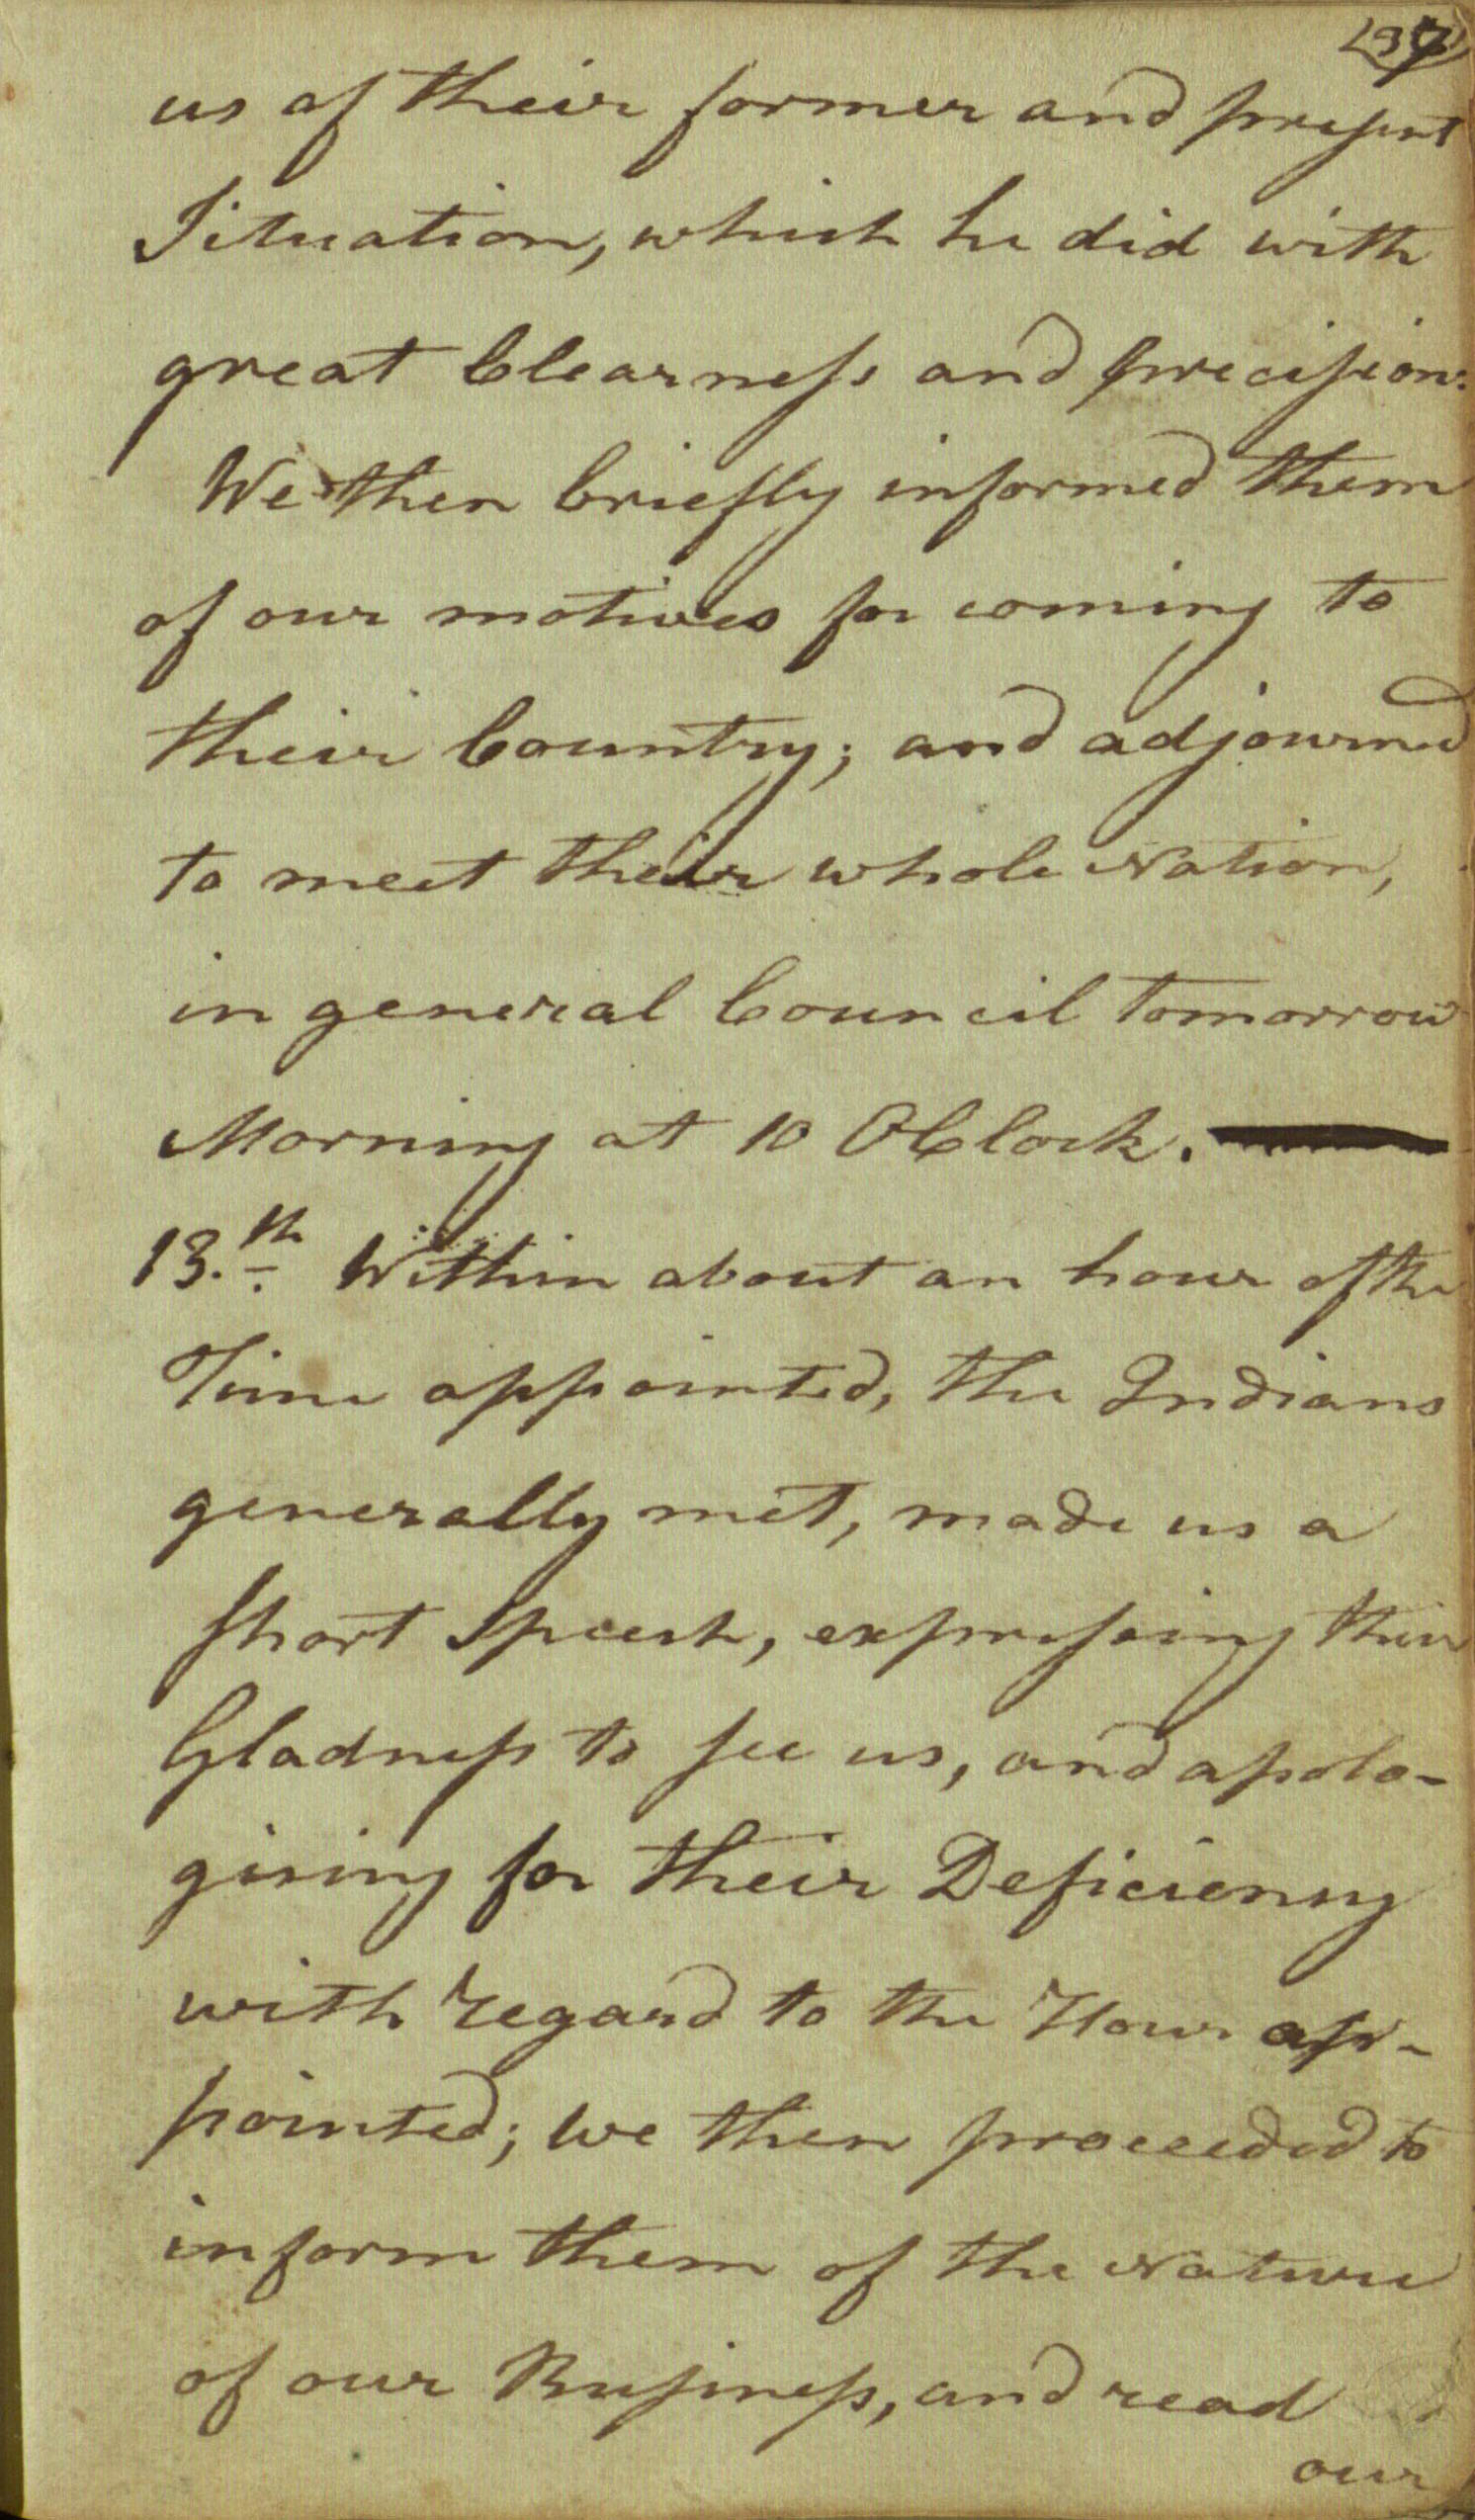 us of their former and present
Situation, which he did with
great Clearness and precision.
We then briefly informed them
of our motives for coming to
their Country; and adjourned
to meet their whole Nation,
in general Council tomorrow
Morning at 10 OClock.
13.th Within about an hour of the
Time appointed, the Indians
generally met, made us a
short Speech, expressing their
Gladness to see us, and apolo-
gising for their Deficiency
with regard to the Hour ap-
pointed; we then proceeded to
inform them of the Nature
of our Business, and read
our